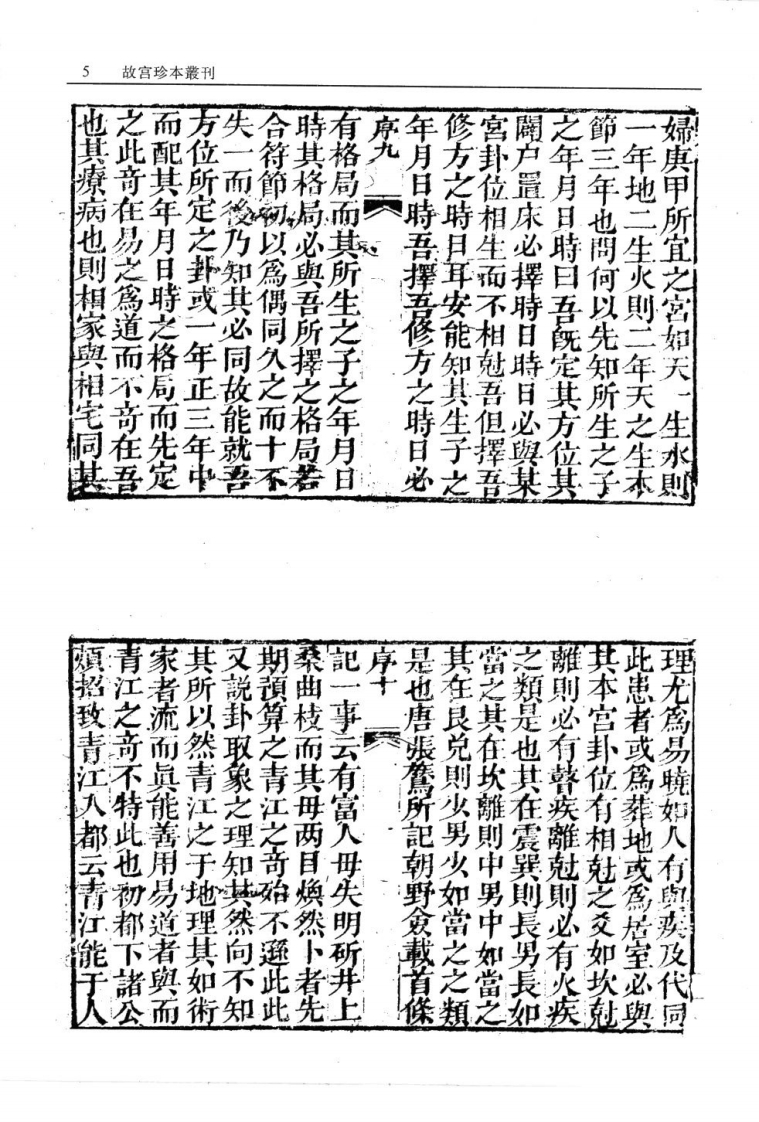 5　故宮珍本叢刊
婦庚甲所宜之宮如天一生水則
一年地二生火則二年天之生木
節三年也問何以先知所生之子
之年月日時曰吾旣定其方位其
闢户置床必擇時日時日必與某
宮卦位相生而不相尅吾但擇吾
修方之時日耳安能知其生子之
年月日時吾擇吾修方之時日必
序九
有格局而其所生之子之年月日
時其格局必與吾所擇之格局若
合符節初以爲偶同久之而十不
失一而後乃知其必同故能就吾
方位所定之卦或一年正三年中
而配其年月日時之格局而先定
之此奇在易之爲道而不奇在吾
也其療病也則相家與相宅同其
理尤爲易曉如人有與疾及代同
此患者或爲葬地或爲居室必與
其本宮卦位有相尅之爻如坎尅
離則必有瞽疾離尅則必有火疾
之類是也其在震巽則長男長如
當之其在坎離則中男中如當之
其在艮兌則少男少如當之之類
是也唐張鷟所記朝野僉載首條
序十
記一事云有富人毋失明斫井上
桑曲枝而其毋两目煥然卜者先
期預算之青江之奇殆不遜此此
又説卦取象之理知其然向不知
其所以然青江之于地理其如術
家者流而眞能善用易道者與而
青江之奇不特此也初都下諸公
頗招致青江人都云青江能于人